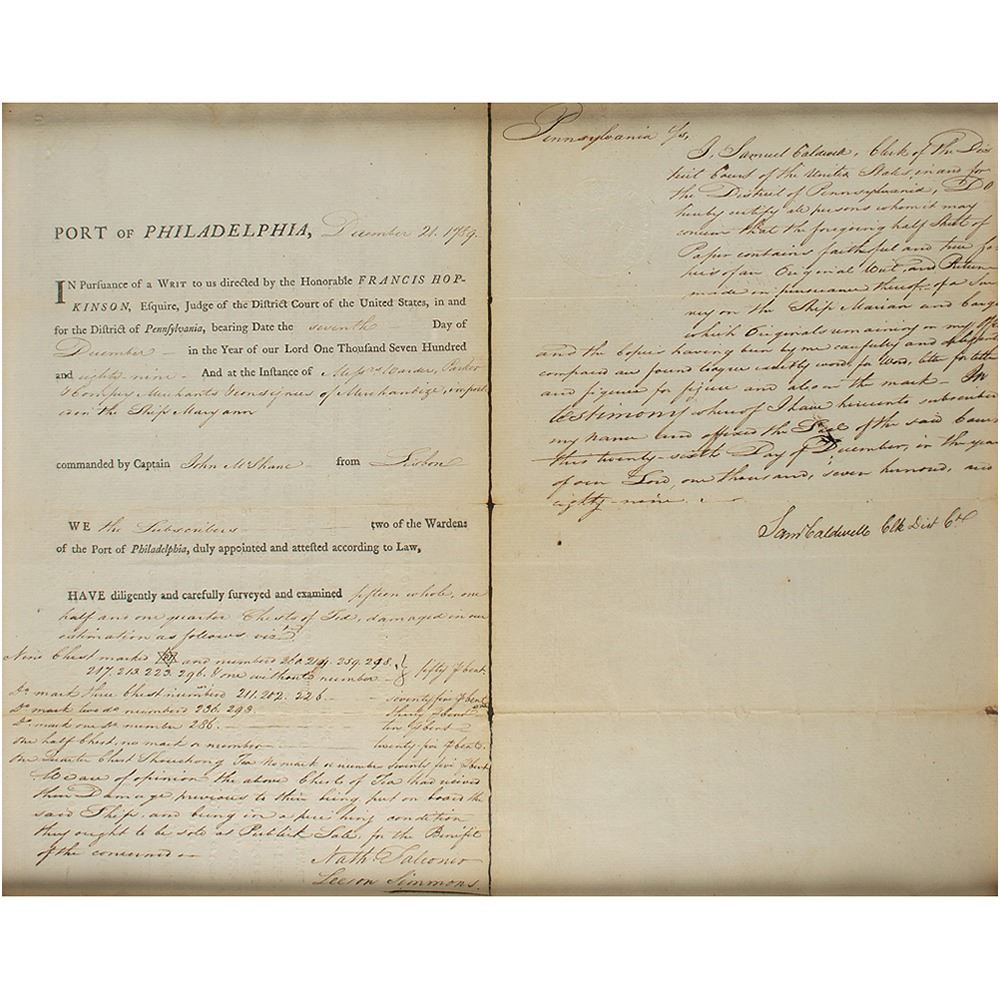 PORT OF PHILADELPHIA, December 21. 1789.
IN Pursuance of a WRIT to us directed by the Honorable FRANCIS HOP-
KINSON, Esquire, Judge of the District Court of the United States, in and
for the District of Pennsylvania, bearing Date the seventh Day of
December in the Year of our Lord One Thousand Seven Hundred
and eighty-nine. And at the Instance of Messrs Warder, Parker
Merchants Consignees of Merchandize,
in the Ship Maryann
commanded by Captain John McShane from Lisbon
WE the Subscribers two of the Wardens
of the Port of Philadelphia, duly appointed and attested according to Law,
HAVE diligently and carefully surveyed and examined fifteen whole, one
half and one quarter Chests of Tea, damaged in our
estimation as follows viz
Nine Chest marked and numbered 210. 259. 298.
217. 213. 223. 296. & one without number fifty ⅌ Cent.
Do mark three Chest numberd 211. 202. 226 seventy five ⅌ Cent
Do mark two do numberd 236. 293. thirty ⅌ Cent
Do mark one do number 286. ten ⅌ Cent
One half Chest, no mark or number twenty-five ⅌ Cent.
One Quarter Chest Shouchong Tea no mark or number seventy five ⅌ Cent
We are of opinion the above Chests of Tea had received
their Damage previous to their being put on board the
said Ship, and being in a perishing condition
they ought to be sold at Publick Sale, for the Benefit
of the concerned
Nath Falconer
Leeson Simmons.
Pennsylvania ss,
I, Samuel Caldwell, Clerk of the Dis-
trict Court of the United States, in and for
the District of Pennsylvania, Do
hereby certify all persons whom it may
concern that the foregoing half Sheet of
Paper contains faithful and true Co-
pies of an Original Writ, and Return
made in pursuance thereof of a Sur-
vey on the Ship Marian and Cargo
which Originals remaining in my Office
and the Copies having been by me carefully and
compared are found to agree exactly word for Word, letter for letter
and figure for figure and also in the mark — In
testimony whereof I have hereunto subscribed
my name and affixed the Seal of the said Court
this twenty-sixth Day of December, in the year
of our Lord, one thousand, seven hundred, and
eighty-nine.
Sam Caldwell Clk Dist Ct